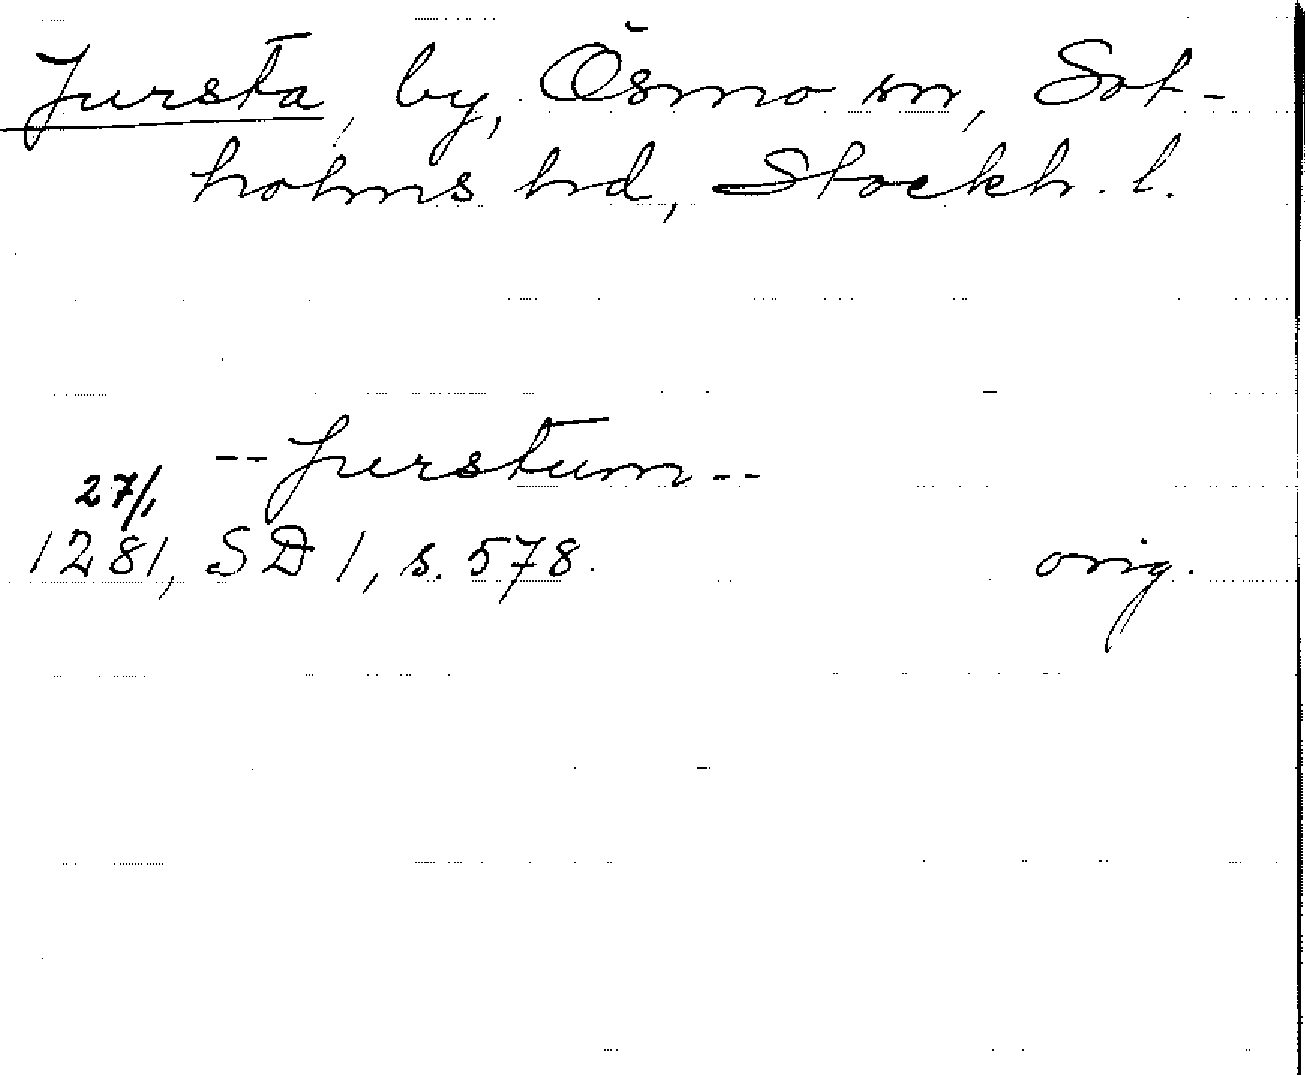 Jursta, by, Ösmo sn, Sot-
holms hd, Stockh. l.
-- Jurstum --
27/1
1281, SD 1, s. 578.
orig.